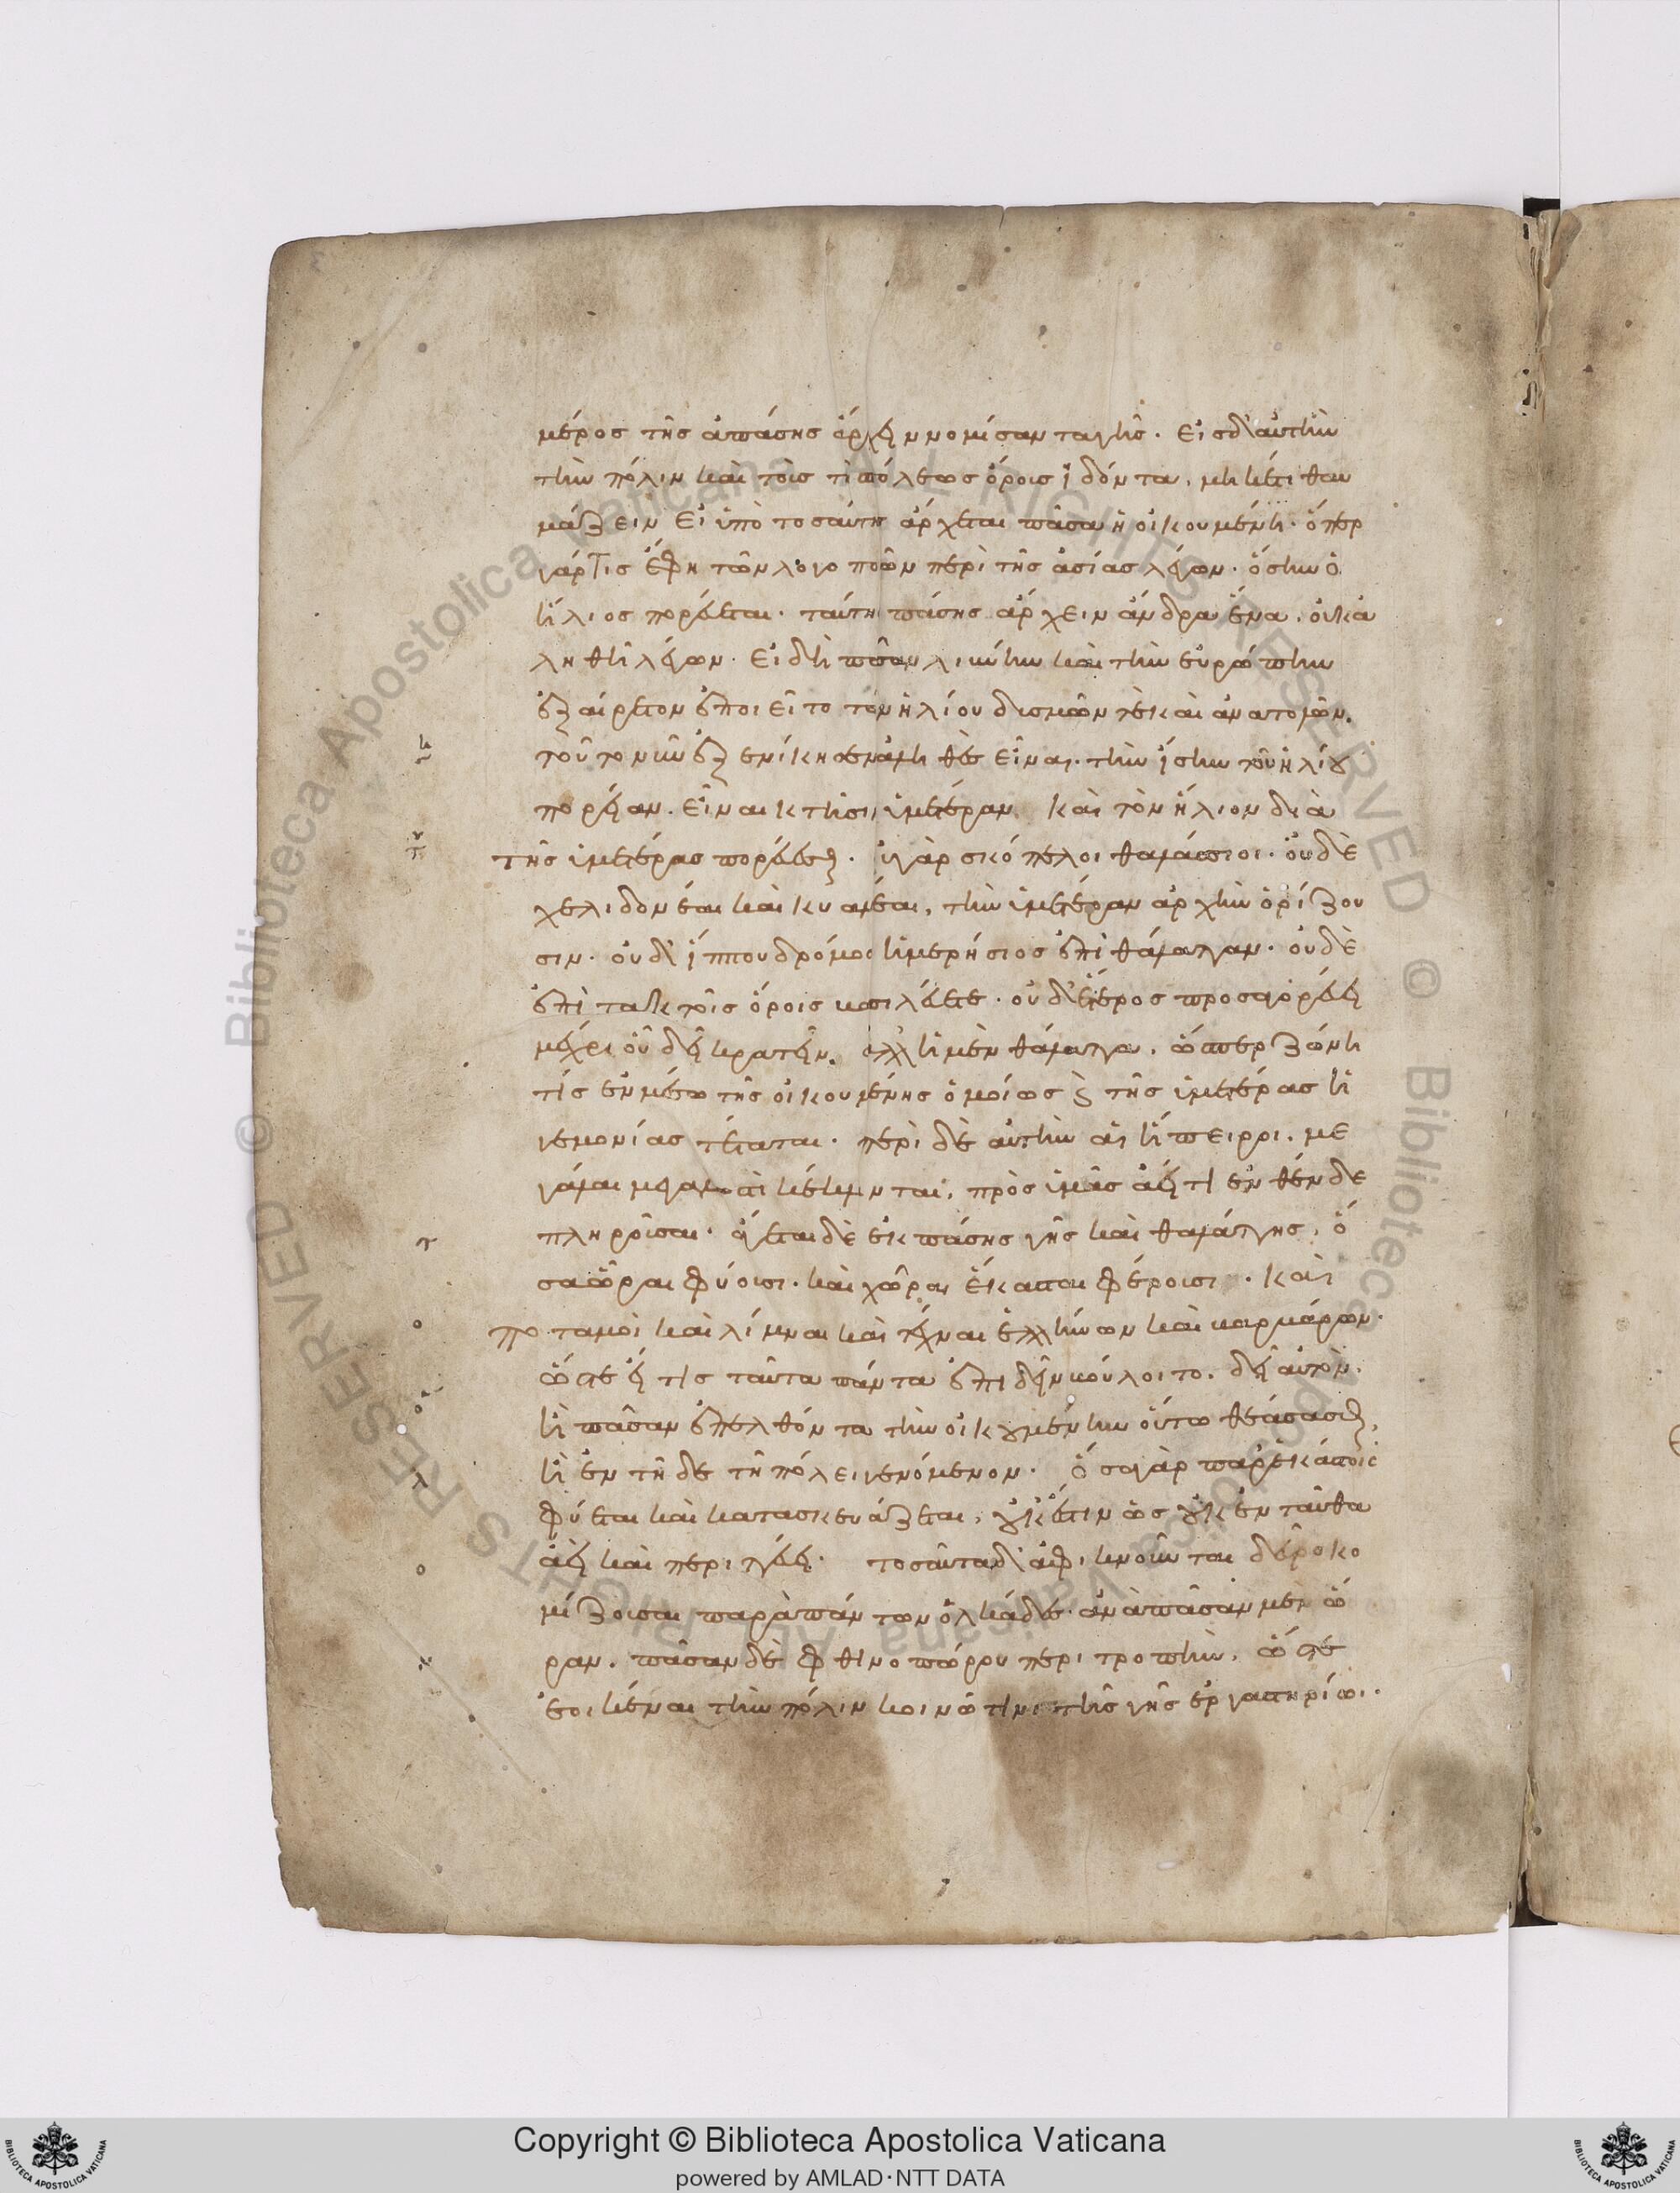 μέρος τῆς ἁπάσης ἄρχειν νομίσαντα γῆς. εἰς δ' αὐτὴν
τὴν πόλιν καὶ τοὺς τῆς πόλεως ὅρους ἰδόντα, μηκέτι θαυ
μάζειν εἰ ὑπὸ τοσαύτης ἄρχεται πᾶσα ἡ οἰκουμένη. ὅπερ
γάρ τις ἔφη τῶν λογοποιῶν περὶ τῆς ἀσίας λέγων. ὅσην ὁ
ἥλιος πορεύεται. ταύτης πάσης ἄρχειν ἄνδρα ἕνα, οὐκ ἀ
ληθῆ λέγων. εἰ δὴ πᾶσαν λιβύην καὶ τὴν εὐρώπην
ἐξαίρετον ἐποιεῖτο τῶν ἡλίου δυσμῶν τε καὶ ἀνατολῶν.
τοῦτο νῦν ἐξενίκησεν ἀληθὲς εἶναι. τὴν ἴσην τοῦ ἡλίου
πορείαν. εἶναι κτῆσιν ὑμετέραν καὶ τὸν ἥλιον διὰ
τῆς ὑμετέρας πορεύεσθαι. οὐ γὰρ σκόπελοι θαλάσσιοι. οὐδὲ
χελιδονέαι καὶ κυανέαι, τὴν ὑμετέραν ἀρχὴν ὁρίζου
σιν. οὐδ' ἵππου δρόμος ἡμερήσιος ἐπὶ θάλατταν. οὐδὲ
ἐπὶ τακτοῖς ὅροις βασιλεύετε. οὐδ' ἕτερος προσαγορεύει
μέχρι οὗ δεῖ κρατεῖν. ἀλλ' ἡ μὲν θάλαττα, ὥσπερ ζώνη
τις ἐν μέσῳ τῆς οἰκουμένης ὁμοίως καὶ τῆς ὑμετέρας ἡ
γεμονίας τέταται. περὶ δὲ αὐτὴν αἱ ἤπειροι. με
γάλαι μεγαλωστὶ κέκληνται, πρὸς ὑμᾶς ἀεί τι ἐνθένδε
πληροῦσαι. ἄγεται δὲ ἐκ πάσης γῆς καὶ θαλάττης, ὅ
σα ὧραι φύουσι. καὶ χῶραι ἕκασται φέρουσι. καὶ
ποταμοὶ καὶ λίμναι καὶ τέχναι ἑλλήνων καὶ βαρβάρων.
ὥστε εἴ τις ταῦτα πάντα ἐπιδεῖν βούλοιτο. δεῖ αὐτὸν.
ἢ πᾶσαν ἐπελθόντα τὴν οἰκουμένην οὕτω θεάσασθαι,
ἢ ἐν τῇδε τῇ πόλει γενόμενον. ὅσα γὰρ παρ' ἑκάστοις
φύεται καὶ κατασκευάζεται, οὐκ ἔστιν ὡς οὐκ ἐνταῦθα
ἀεὶ καὶ περιττεύει. τοσαῦται δ' ἀφικνοῦνται δεῦρο κο
μίζουσαι παρὰ πάντων ὁλκάδες. ἀνὰ πᾶσαν μὲν ὥ
ραν. πᾶσαν δὲ φθινοπώρου περιτροπὴν, ὥστε
ἐοικέναι τὴν πόλιν κοινῷ τινι τῆς γῆς ἐργαστηρίῳ.